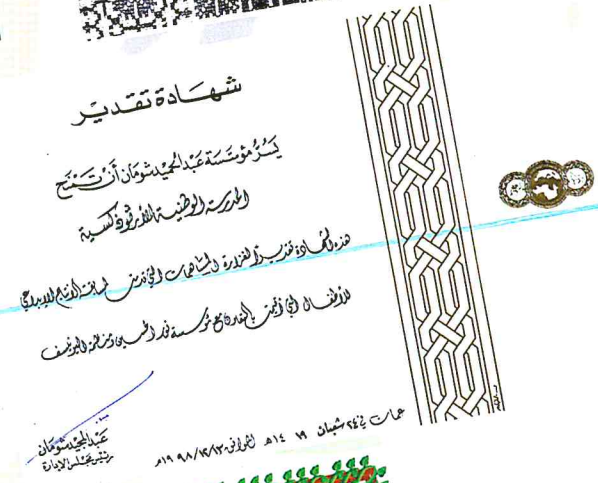 شهادة تقدير
يسر مؤسسة عبد الحميد شومان أن تمنح
المدرسة الوطنية الأرثوذكسية
هذه الشهادة تقديراً لغزارة المساهمات التي قدمت لمسابقة الانتاج الإبداعي
للأطفال التي أقيمت بالتعاون مع مؤسسة نور الحسين ومنظمة اليونيسف
عمان في ٢٤ شعبان ١٤١٩هـ الموافق ١٩٩٨/١٢/١٣م
عبد المجيد شومان
رئيس مجلس الإدارة